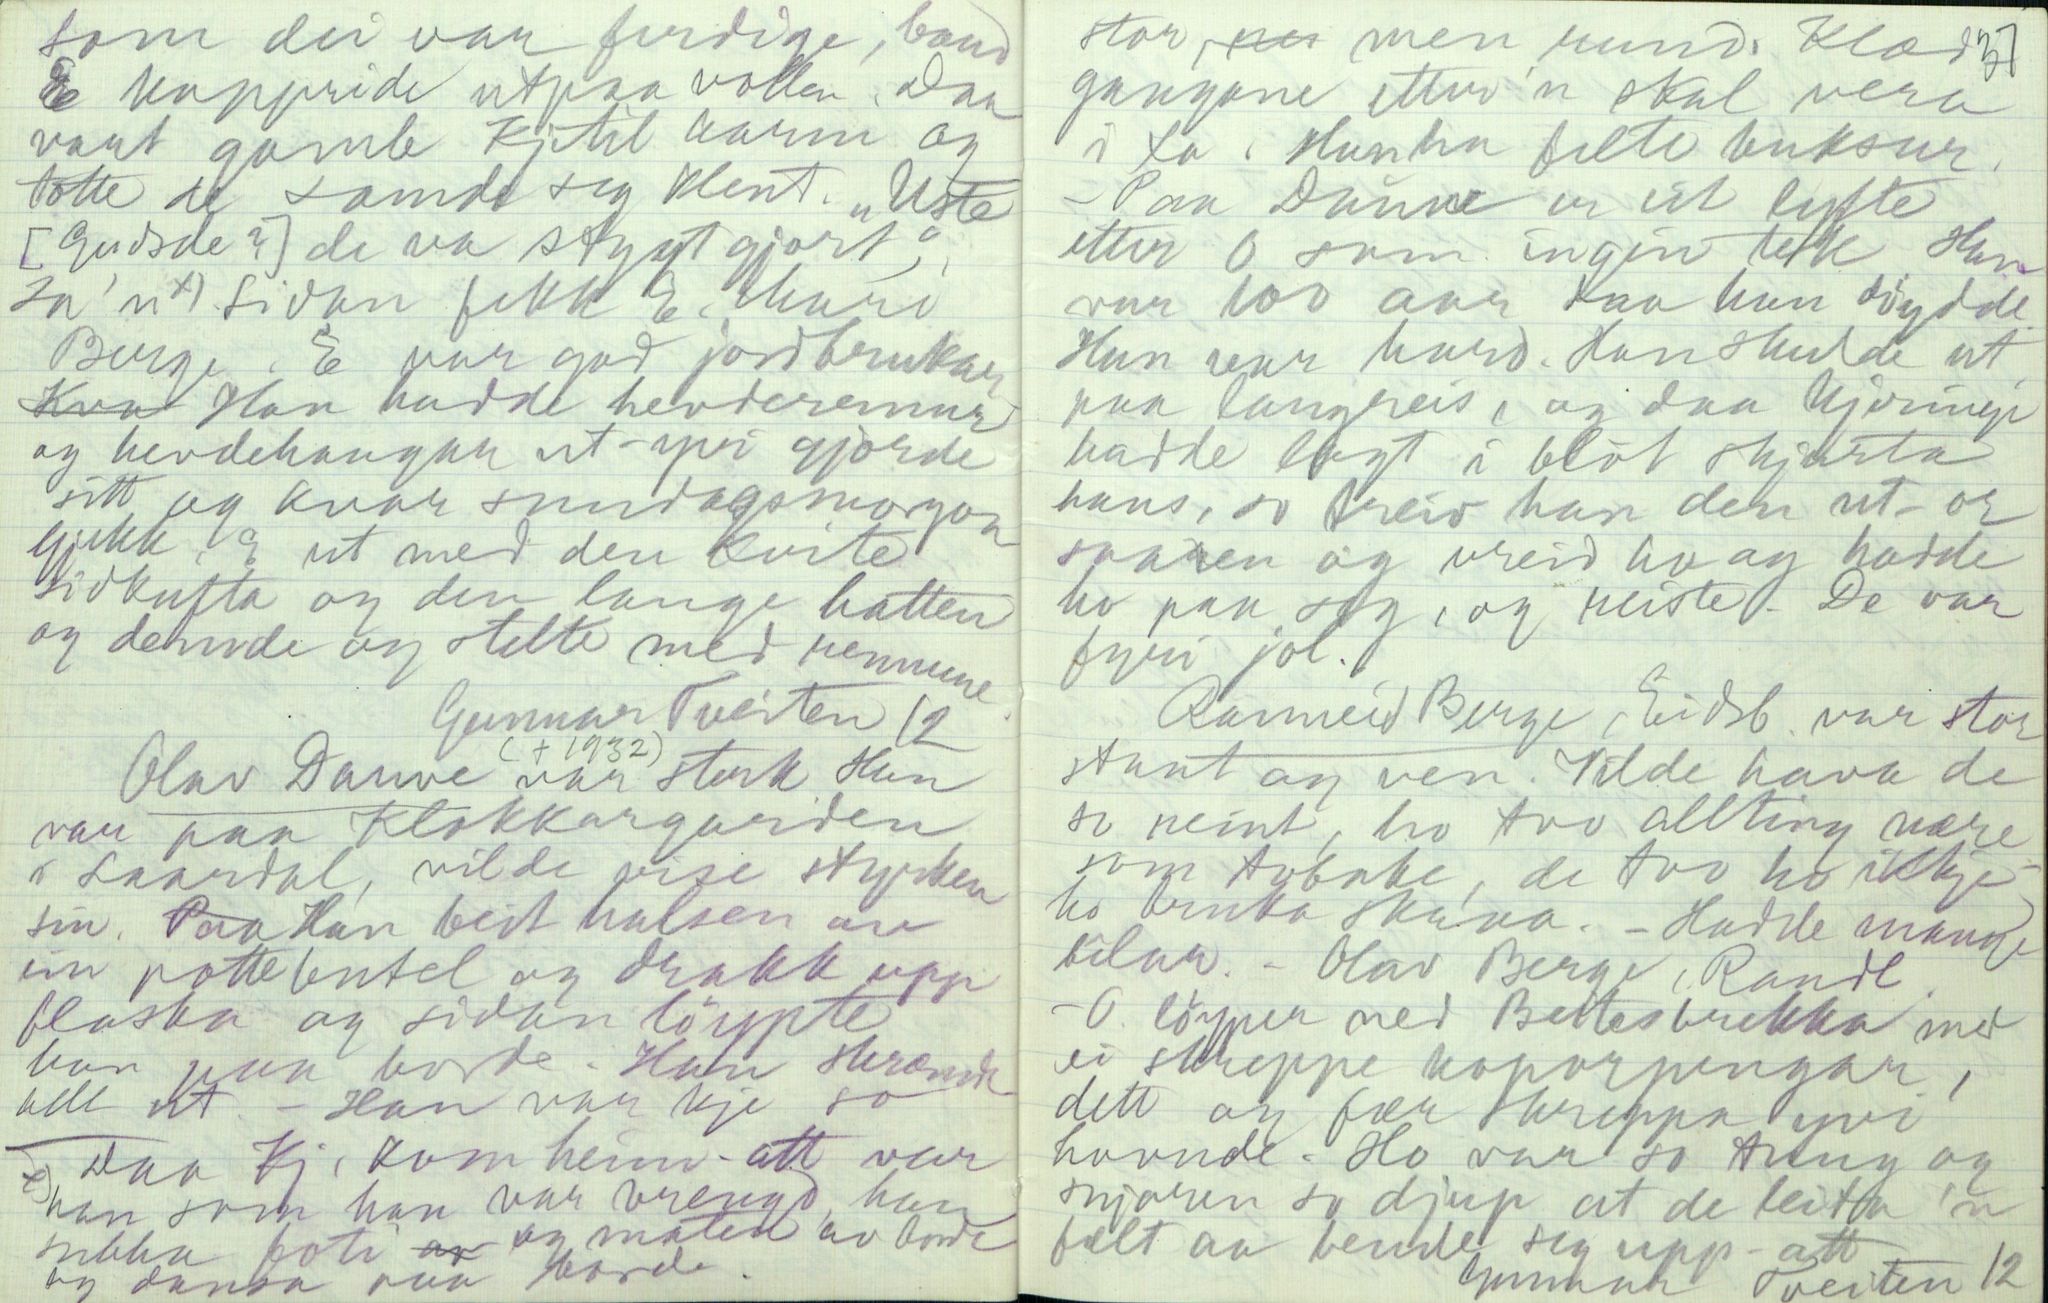 som dei var ferdige, baud
E kappride utpaa vollen. Daa
vart gamle Kjetil harm og
totte de samde seg klent. „Uste
[Gudsde?] de va stygt gjort",
sa'n x) Sidan fekk E. Mari
Berge. E var god jordbrukar,
Kva Han hadde hevderennur
og hevdehaugar ut-yvi gjorde
sitt og kvar sundagsmorgon
gjekk E ut med den kvite
sidkufta og den lange hatten
og demde og stelte med rennune.
Gunnar Tveiten 12
(+ 1932)
Olav Dauve var sterk. Han
var paa Klokkargarden
i Laardal, vilde vise styrken
sin. Paa Han beit halsen av
ein pottebutel og drakk upp
flaska og sidan löypte
han paa borde. Han skræmde
allt ut. - Han var kje so
x) Daa Kj. kom heim-att var
han som han var vrengd, han
sukka foti av og maten av borde
og dansa paa borde.
37
stor, men rund. Klæd
gangane etter'n skal vera
i Lo. Han ha filte buksur.
- Paa Dauve er eit lyfte
etter O som ingen tek. Han
var 100 aar daa han döydde.
Han var hard. Han skulde ut
paa langreis, og daa kjeringi
hadde lagt i blöt skjorta
hans, so treiv han den ut-or
saaen og vreid ho og hadde
ho paa seg, og reiste. De var
fyri jol.
Ranneid Berge, Eidsb. var stor
staut og ven. Vilde hava de
so reint, ho tvo allting være
som tobake, de tvo ho ikkje
ho bruka skraa. - Hadde mange
bilar. - Olav Berge, Raudl.
- O. löyper ned Bettesbrekka med
ei skreppe koparpengar,
dett og fær skreppa yvi
hovude. Ho var so tung og
snjoren so djup at de leita 'n
fælt aa vende seg upp-att
Gunnar Tveiten 12